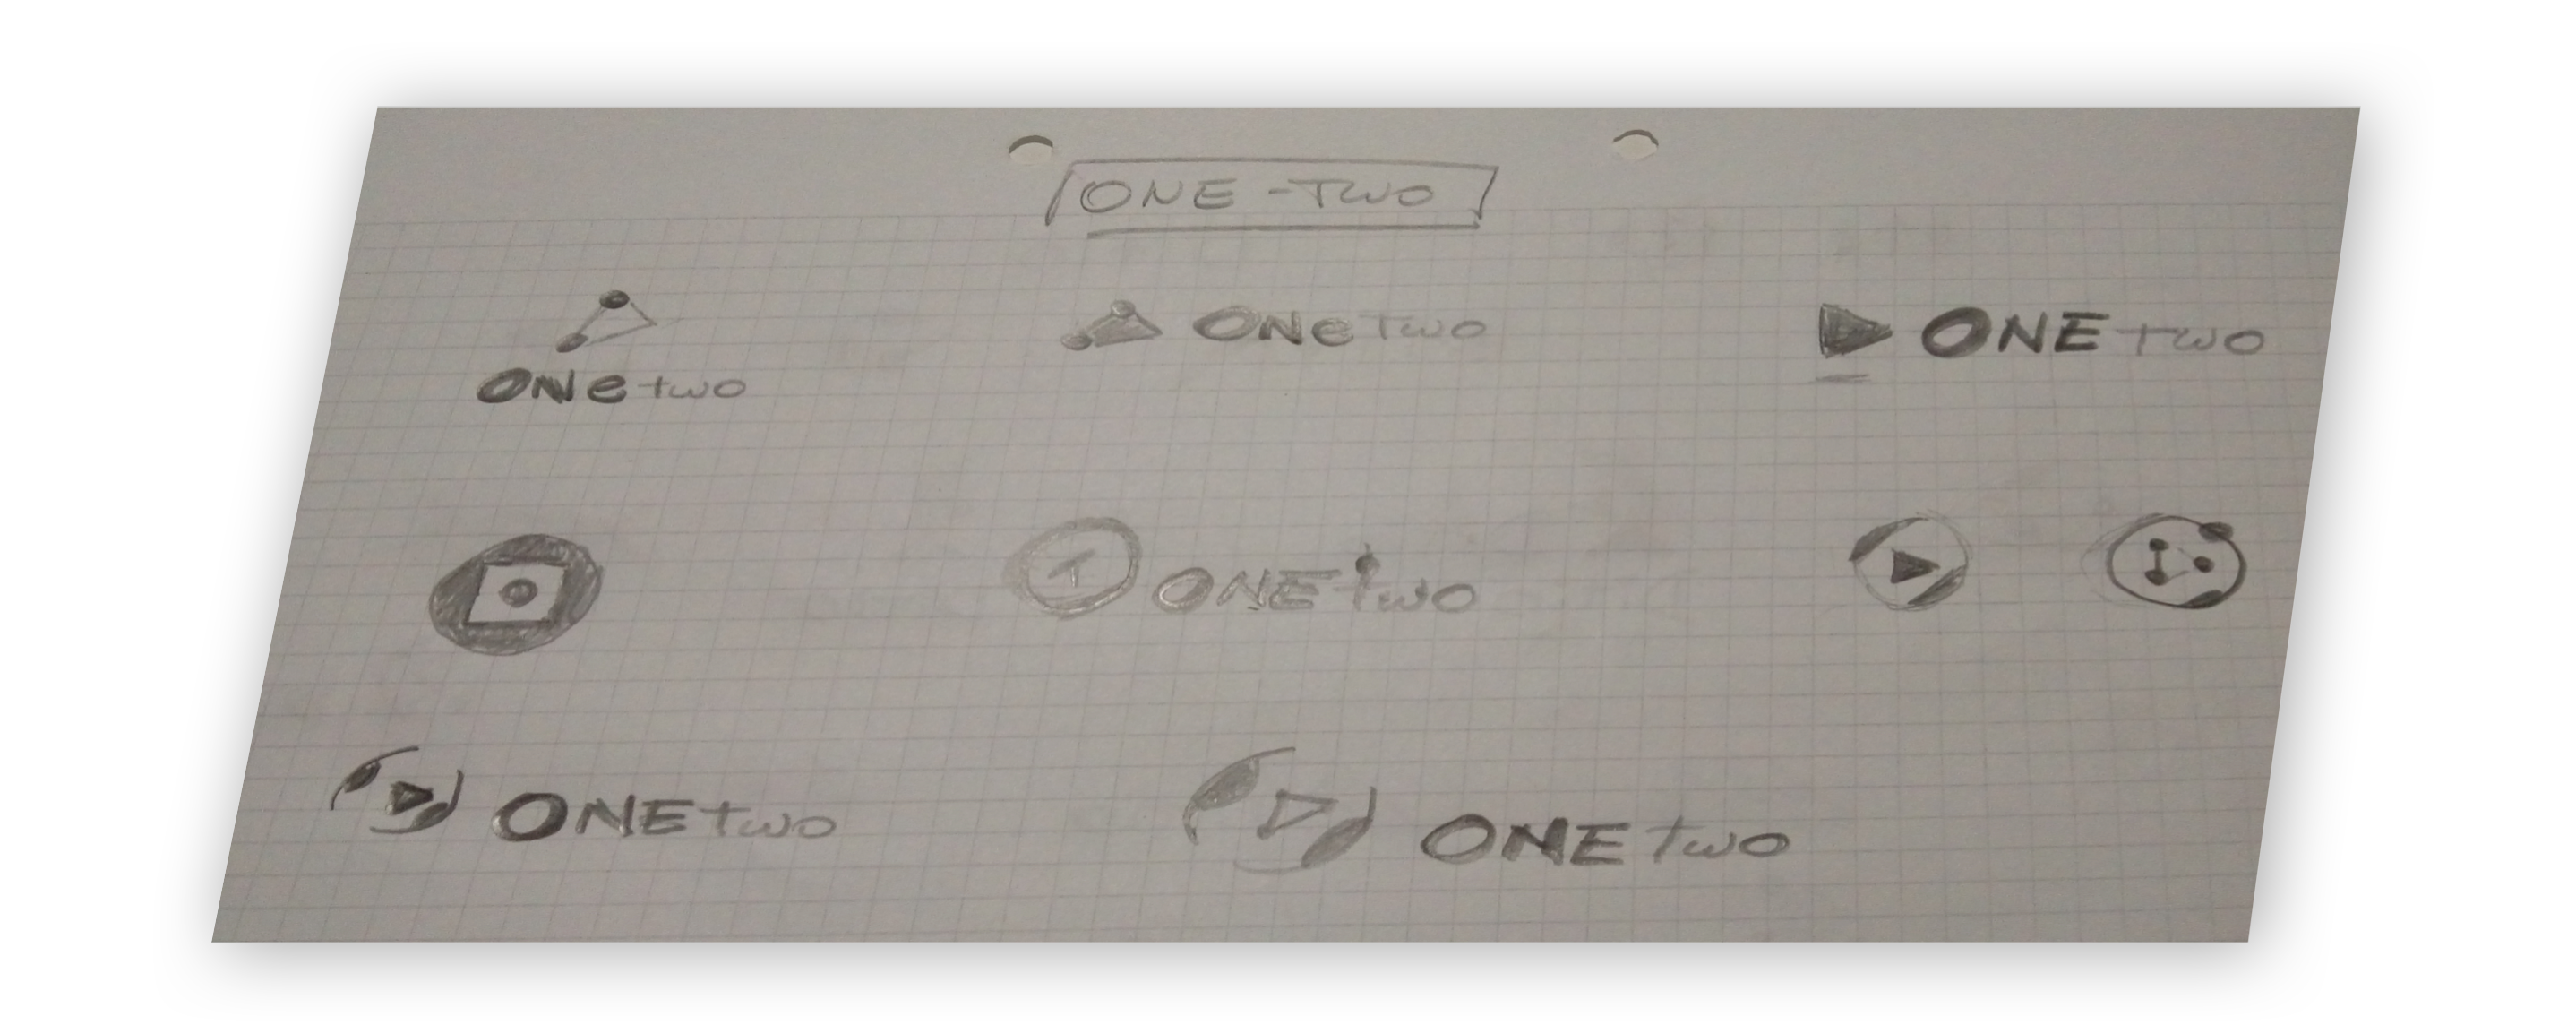 ONE-TWO
ONe two
ONe Two
ONE two
1 ONE two
ONE two
ONE two